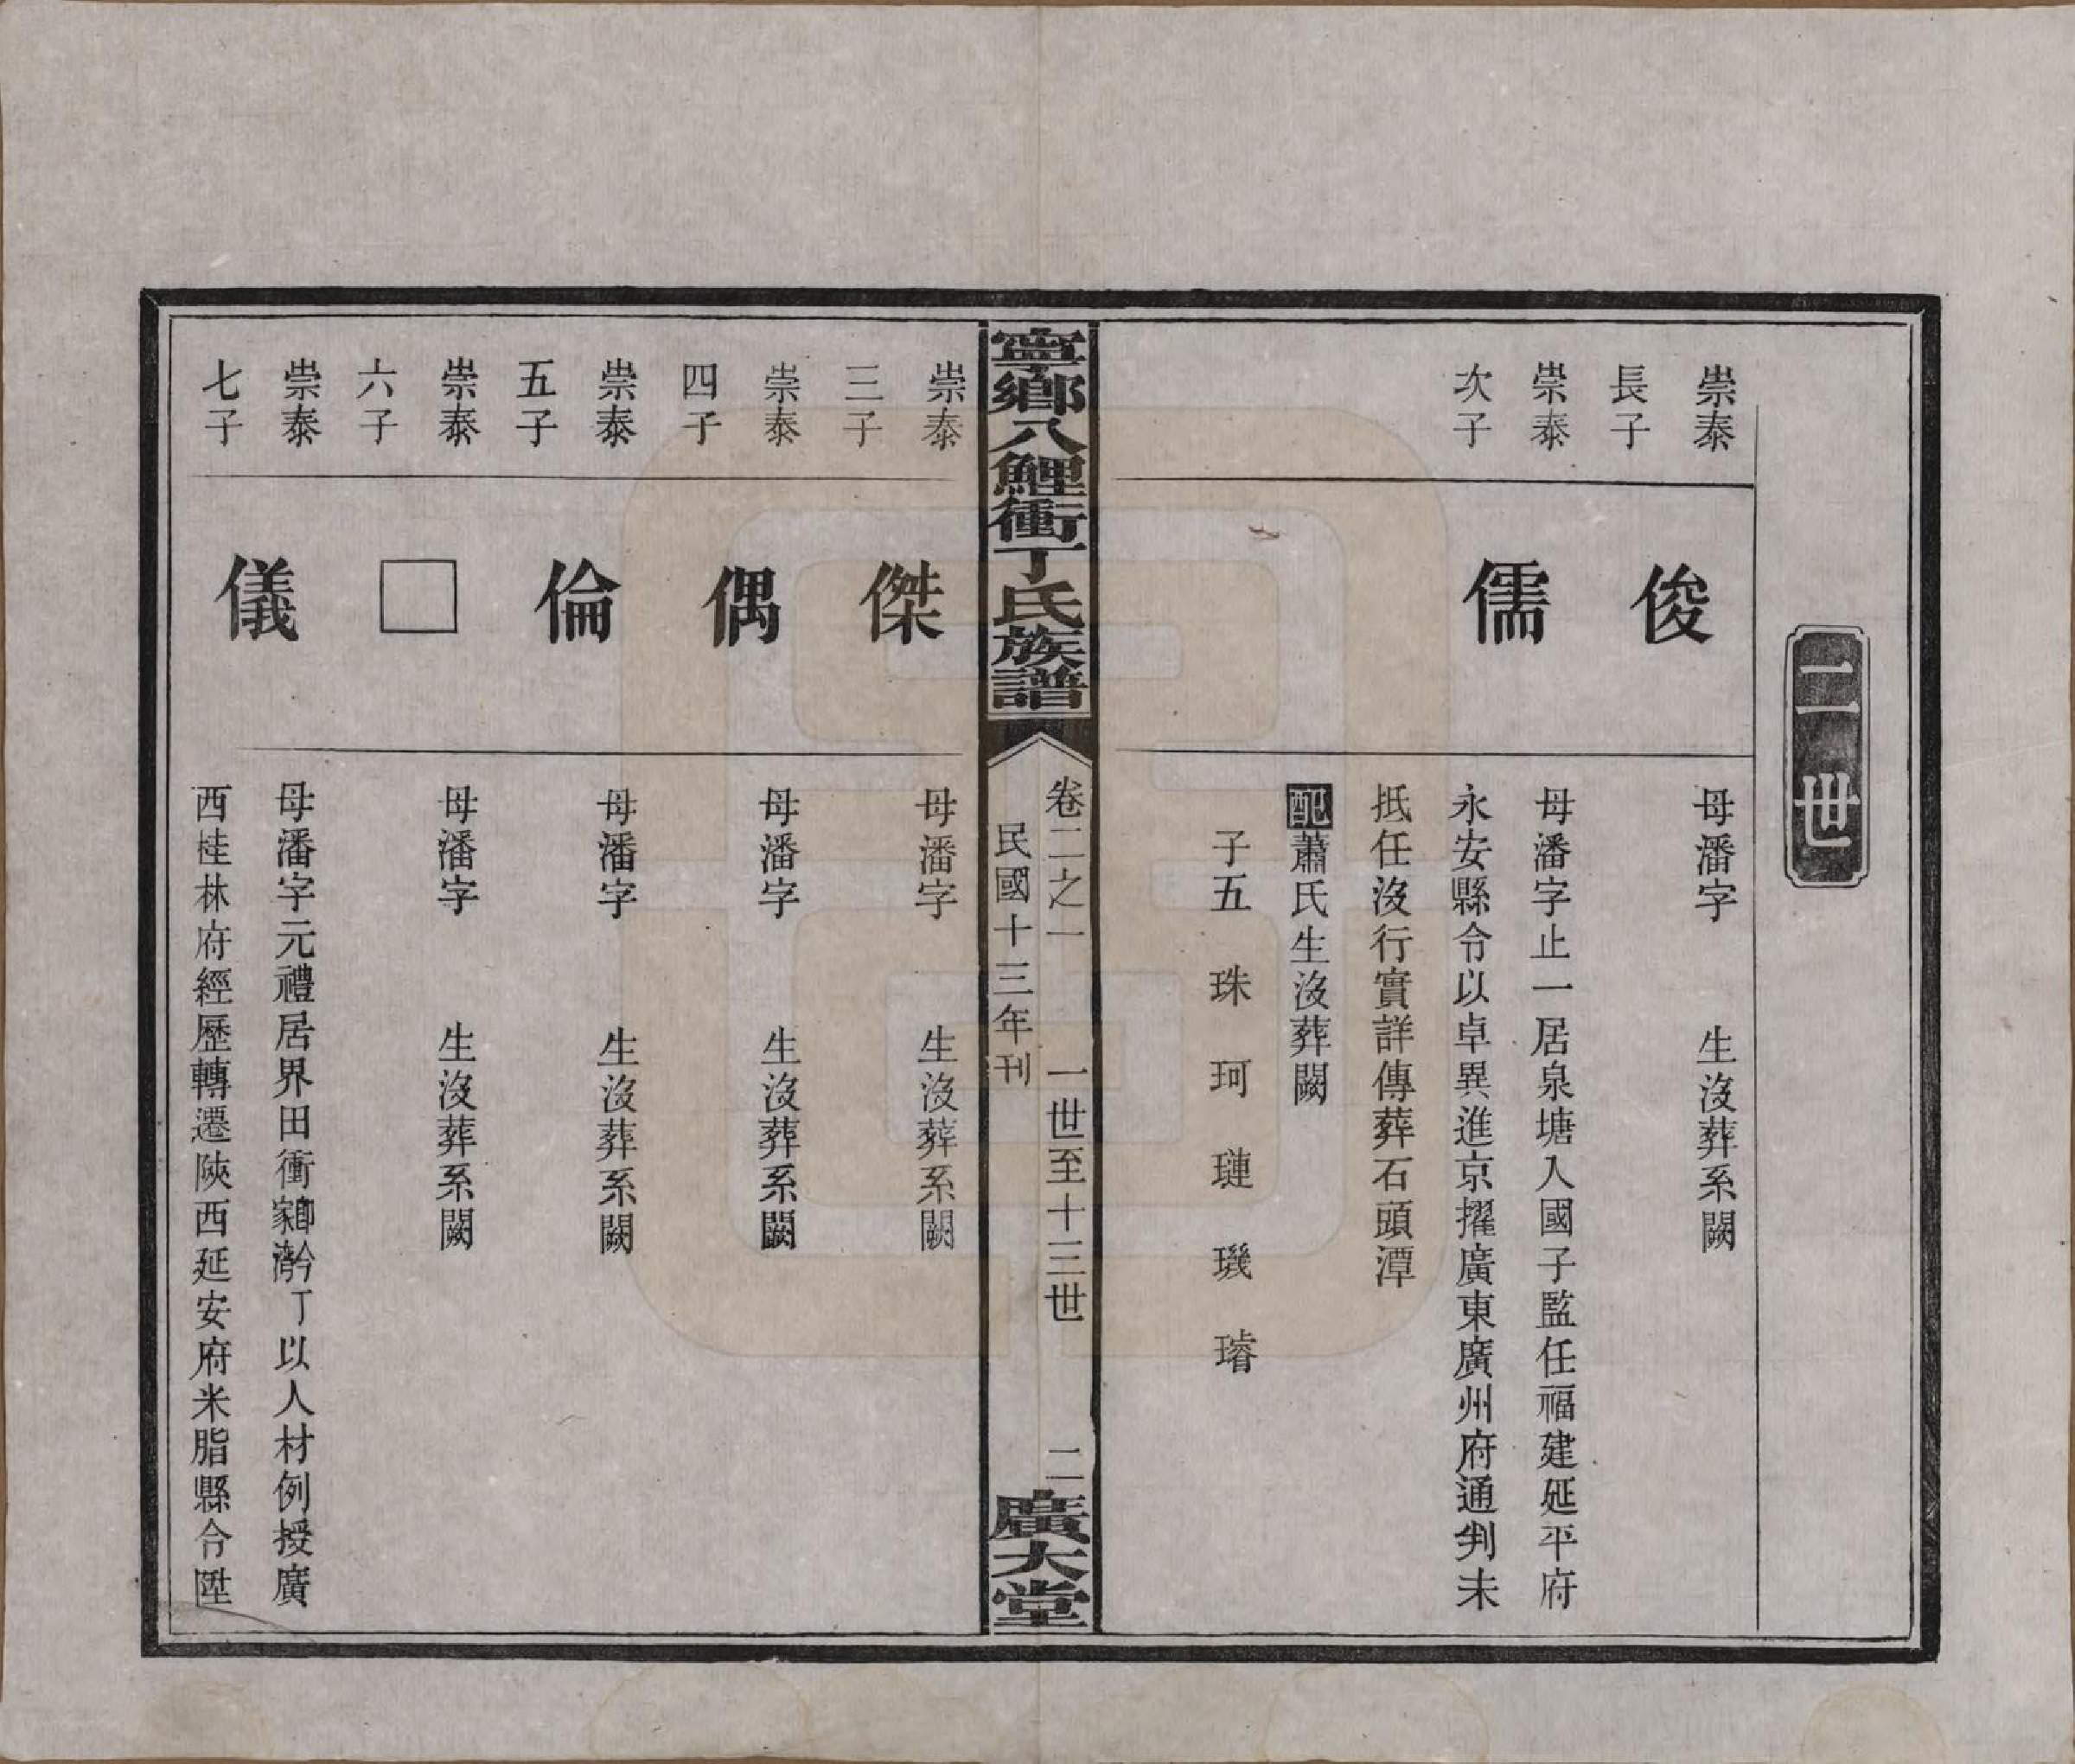 二世
崇泰
長子
俊
母潘字　生沒葬系闕
崇泰
次子
儒
母潘字止一居泉塘入國子監任福建延平府
永安縣令以卓異進京擢廣東廣州府通判未
抵任沒行實詳傳葬石頭潭
配蕭氏生沒葬闕
子五　珠　珂　璉　璣　璿
寧鄉八鯉衝丁氏族譜
卷二之一　一世至十三世　二
民國十三年刊
廣大堂
崇泰
三子
傑
母潘字　生沒葬系闕
崇泰
四子
偶
母潘字　生沒葬系闕
崇泰
五子
倫
母潘字　生沒葬系闕
崇泰
六子
□
母潘字　生沒葬系闕
崇泰
七子
儀
母潘字元禮居界田衝卽今丁家灣以人材例授廣
西桂林府經歷轉遷陝西延安府米脂縣合陞